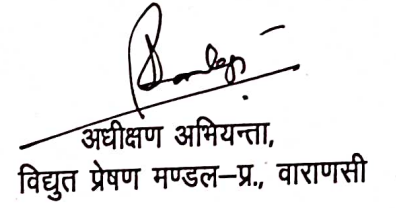 अधीक्षण अभियन्ता,
विद्युत प्रेषण मण्डल–प्र., वाराणसी